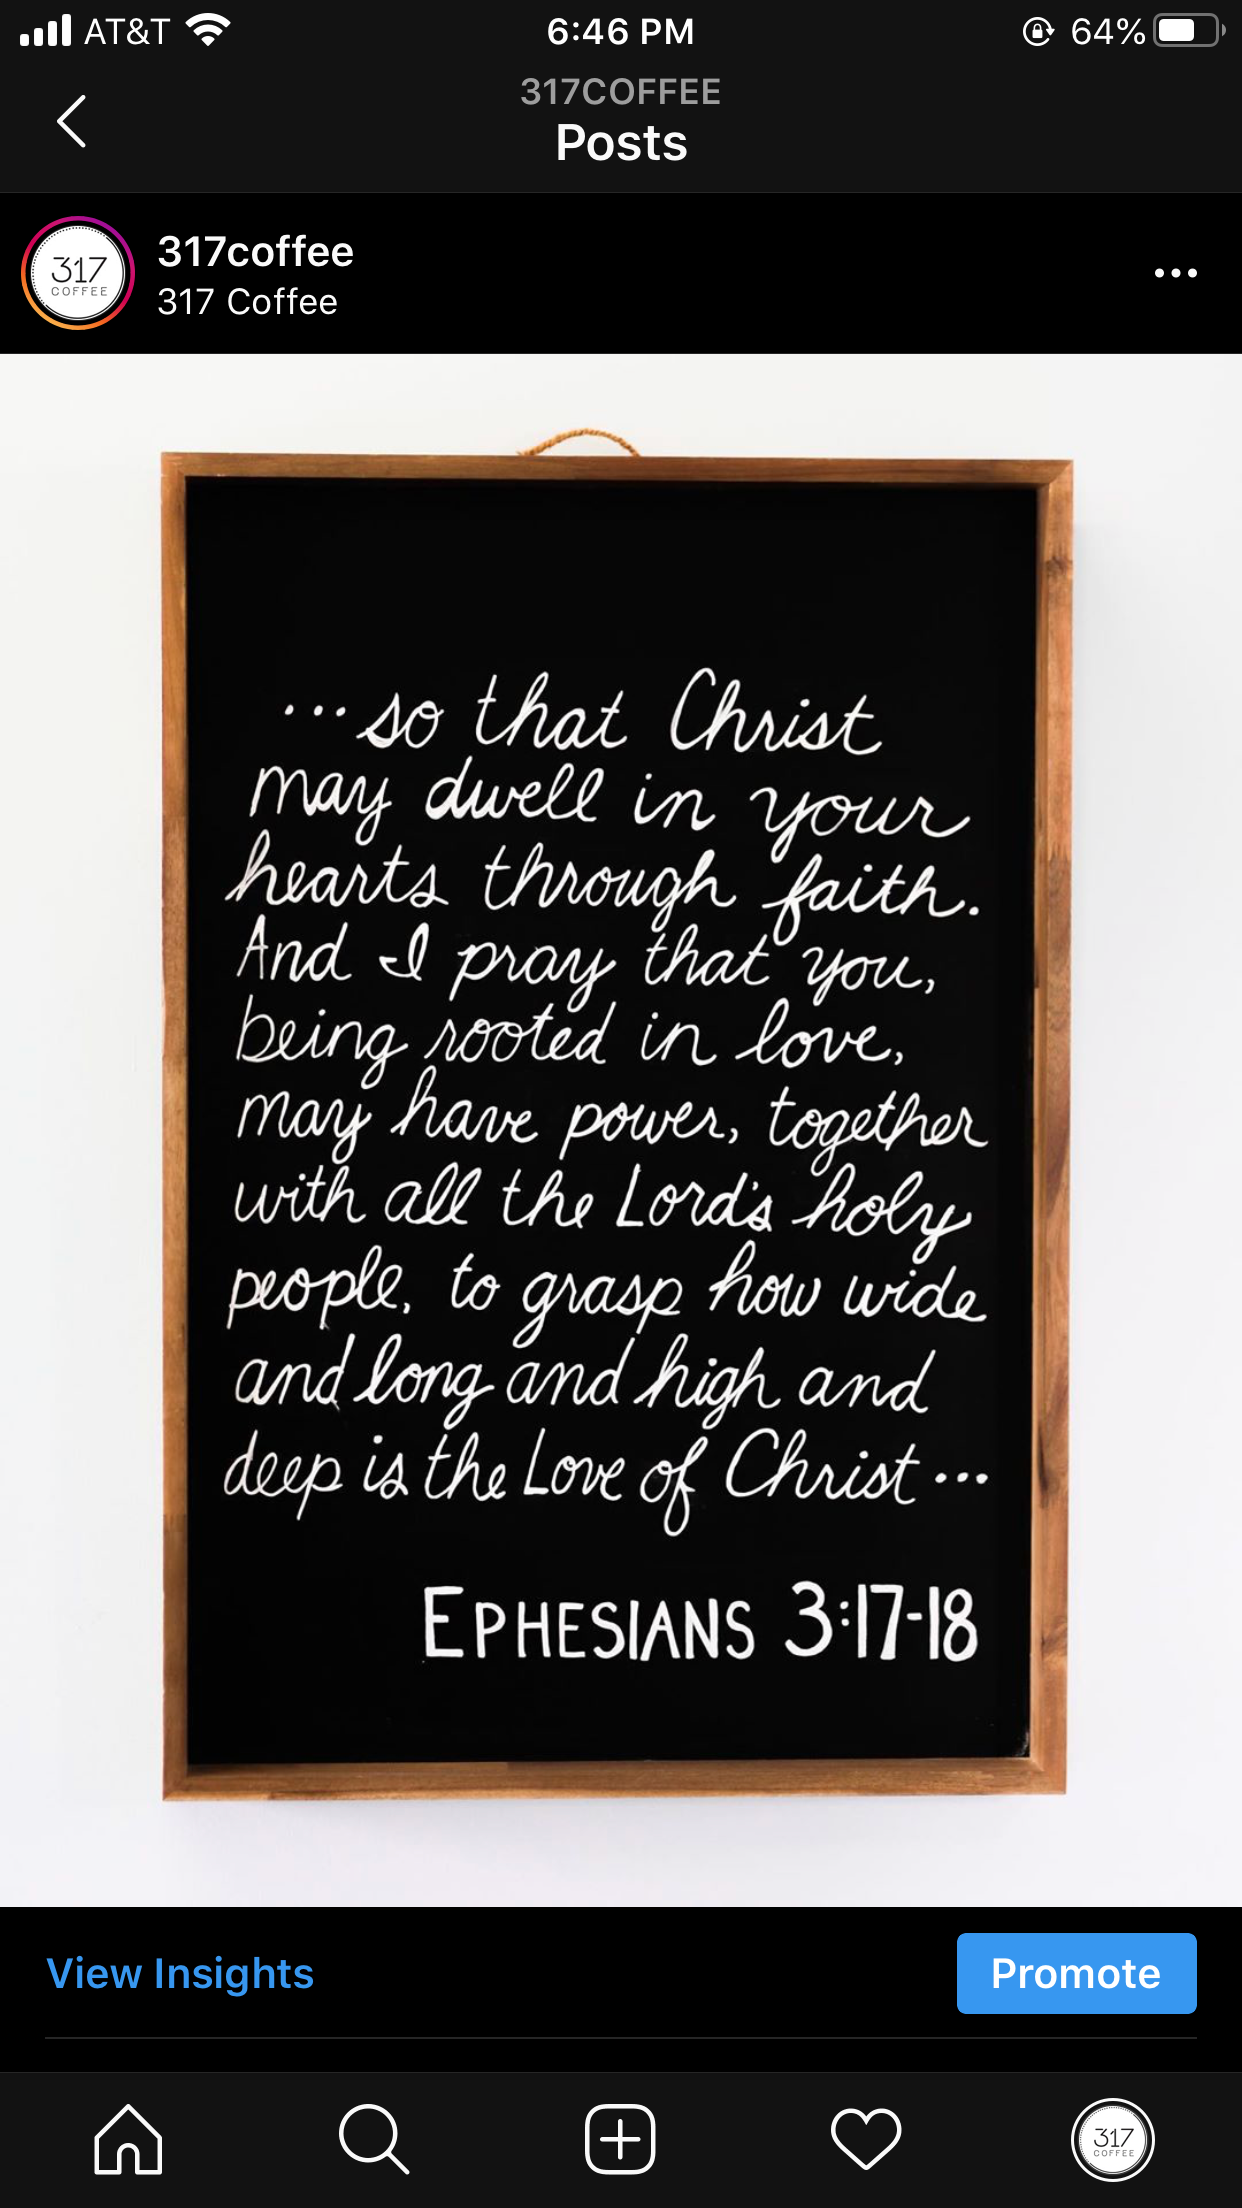 AT&T 6:46 PM 64%
317COFFEE
Posts
317 COFFEE
317coffee
317 Coffee
...so that Christ
may dwell in your
hearts through faith.
And I pray that you,
being rooted in love,
may have power, together
with all the Lord's holy
people, to grasp how wide
and long and high and
deep is the Love of Christ...
EPHESIANS 3:17-18
View Insights
Promote
317 COFFEE